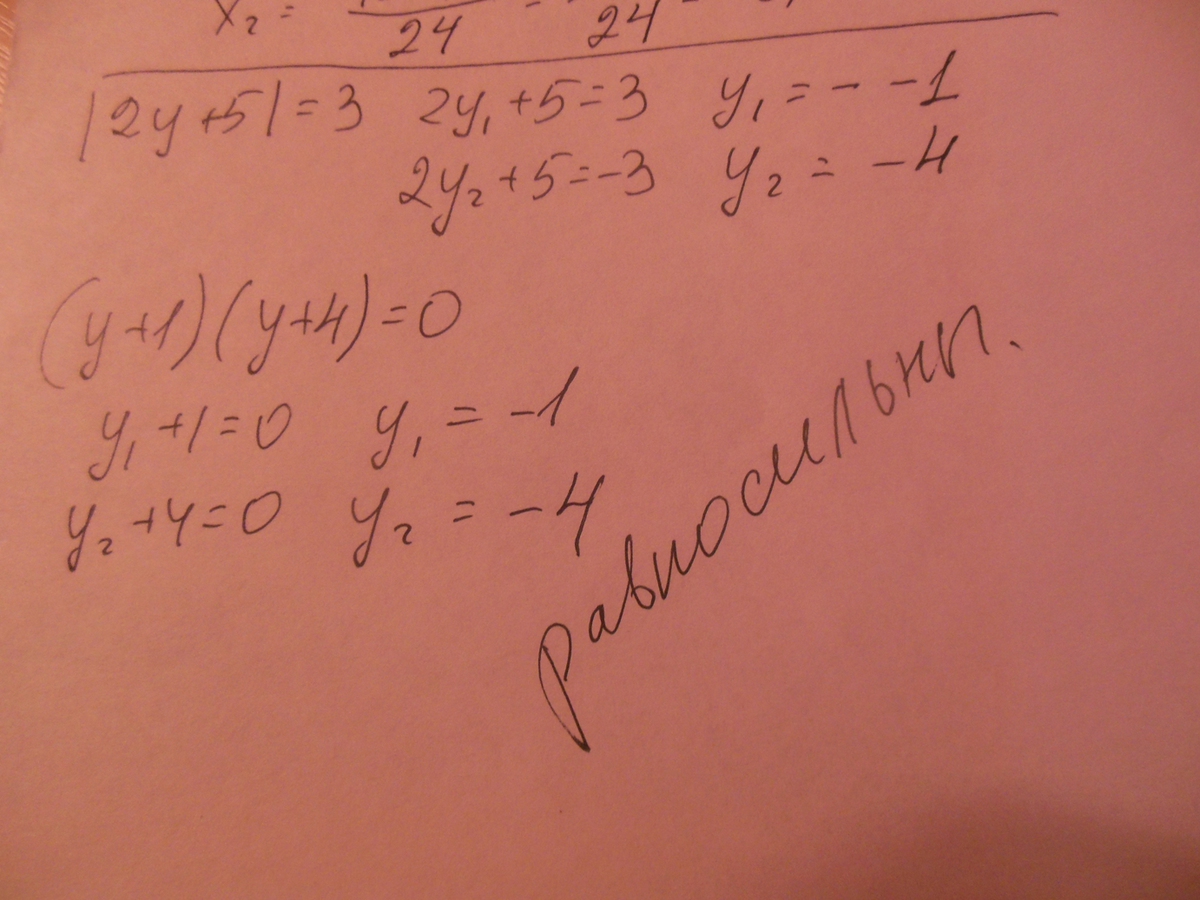 x₂ = 24 = 24
|2y+5|=3 2y₁+5=3 y₁=- -1
2y₂+5=-3 y₂ = -4
(y+1)(y+4)=0
y₁+1=0 y₁ = -1
y₂+4=0 y₂ = -4
равносильны.